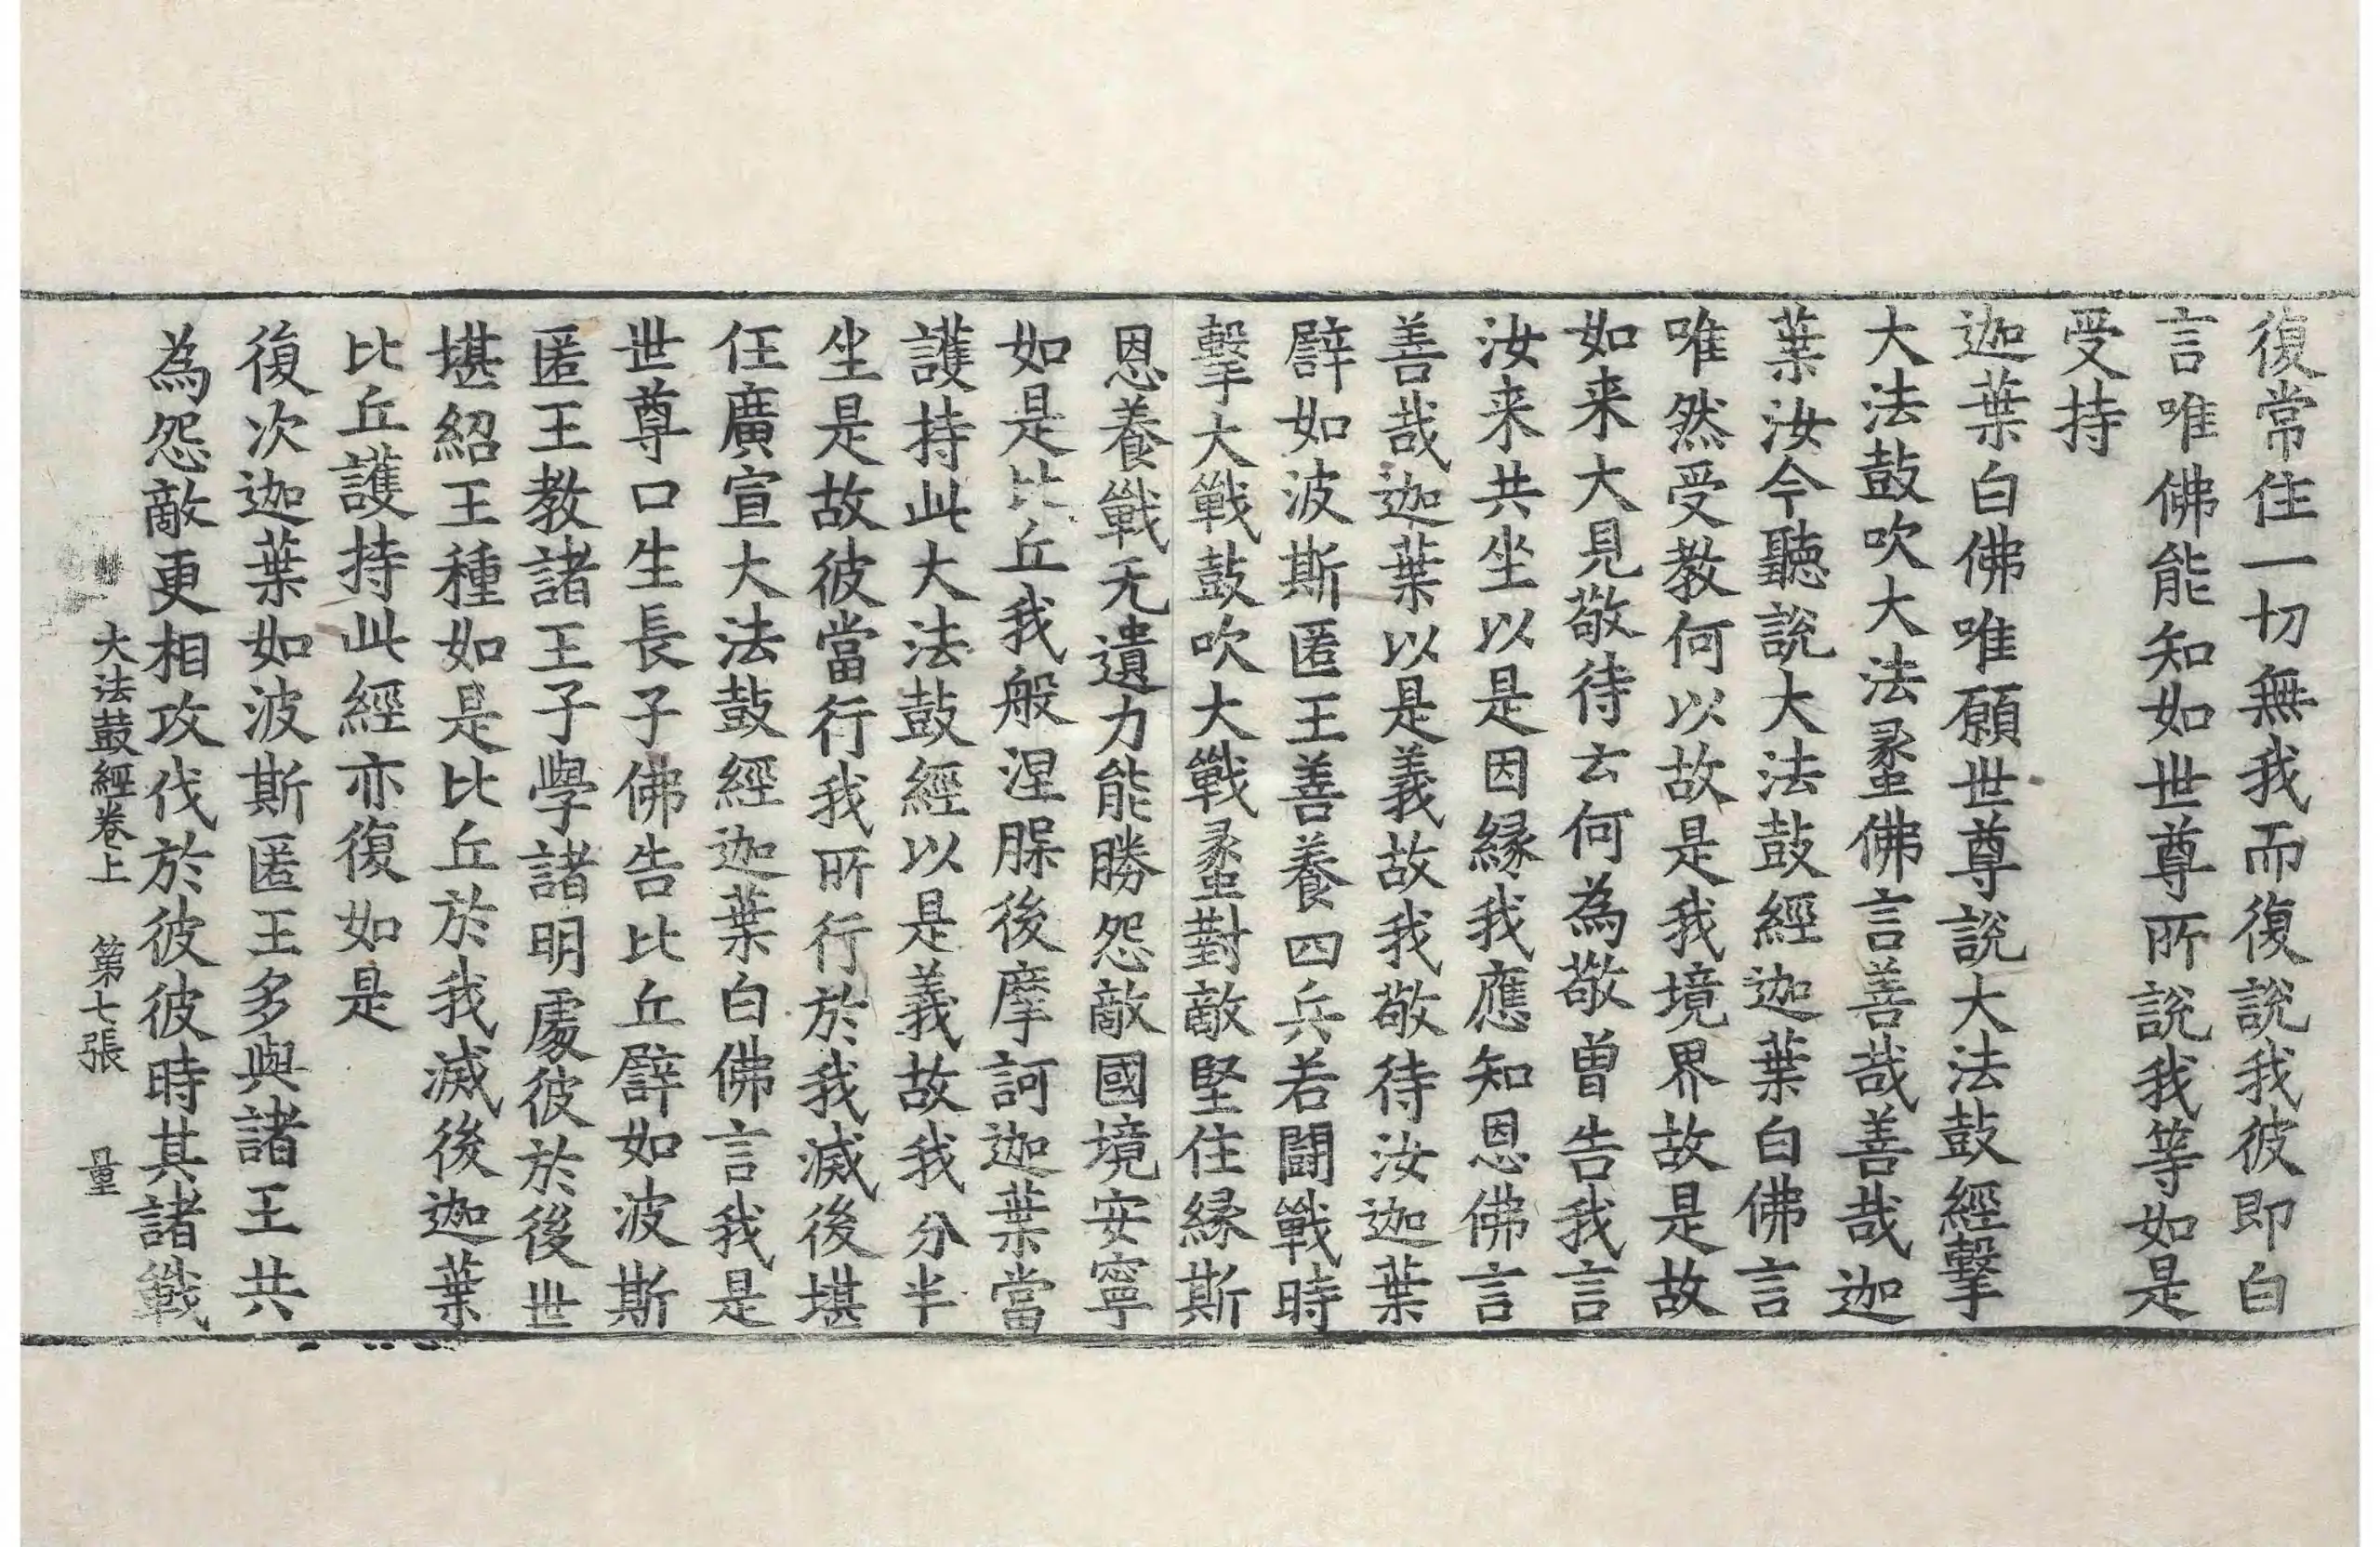 復常住一切無我而復說我彼即白
言唯佛能知如世尊所說我等如是
受持
迦葉白佛唯願世尊說大法鼓經擊
大法鼓吹大法蠡佛言善哉善哉迦
葉汝今聽說大法鼓經迦葉白佛言
唯然受教何以故是我境界故是故
如来大見敬待云何為敬曽告我言
汝来共坐以是因縁我應知恩佛言
善哉迦葉以是義故我敬待汝迦葉
譬如波斯匿王善養四兵若鬪戰時
擊大戰鼓吹大戰蠡對敵堅住縁斯
恩養戰无遺力能勝怨敵國境安寧
如是比丘我般涅槃後摩訶迦葉當
護持此大法鼓經以是義故我分半
坐是故彼當行我所行於我滅後堪
任廣宣大法鼓經迦葉白佛言我是
世尊口生長子佛告比丘譬如波斯
匿王教諸王子學諸明處彼於後世
堪紹王種如是比丘於我滅後迦葉
比丘護持此經亦復如是
復次迦葉如波斯匿王多與諸王共
為怨敵更相攻伐於彼彼時其諸戰
大法鼓經卷上 第七張 量